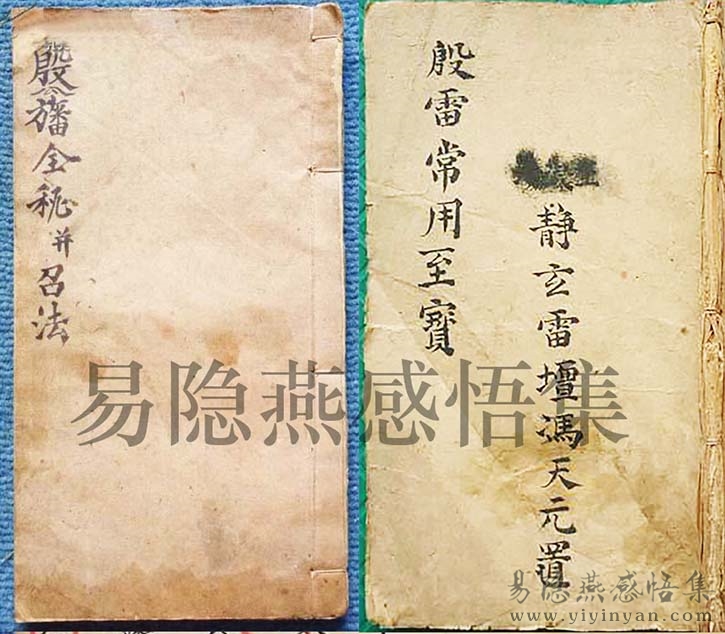 殷旛全秘并召法
殷雷常用至寶
静玄雷壇馮天元置
易隐燕感悟集
易隐燕感悟集
www.yiyinyan.com